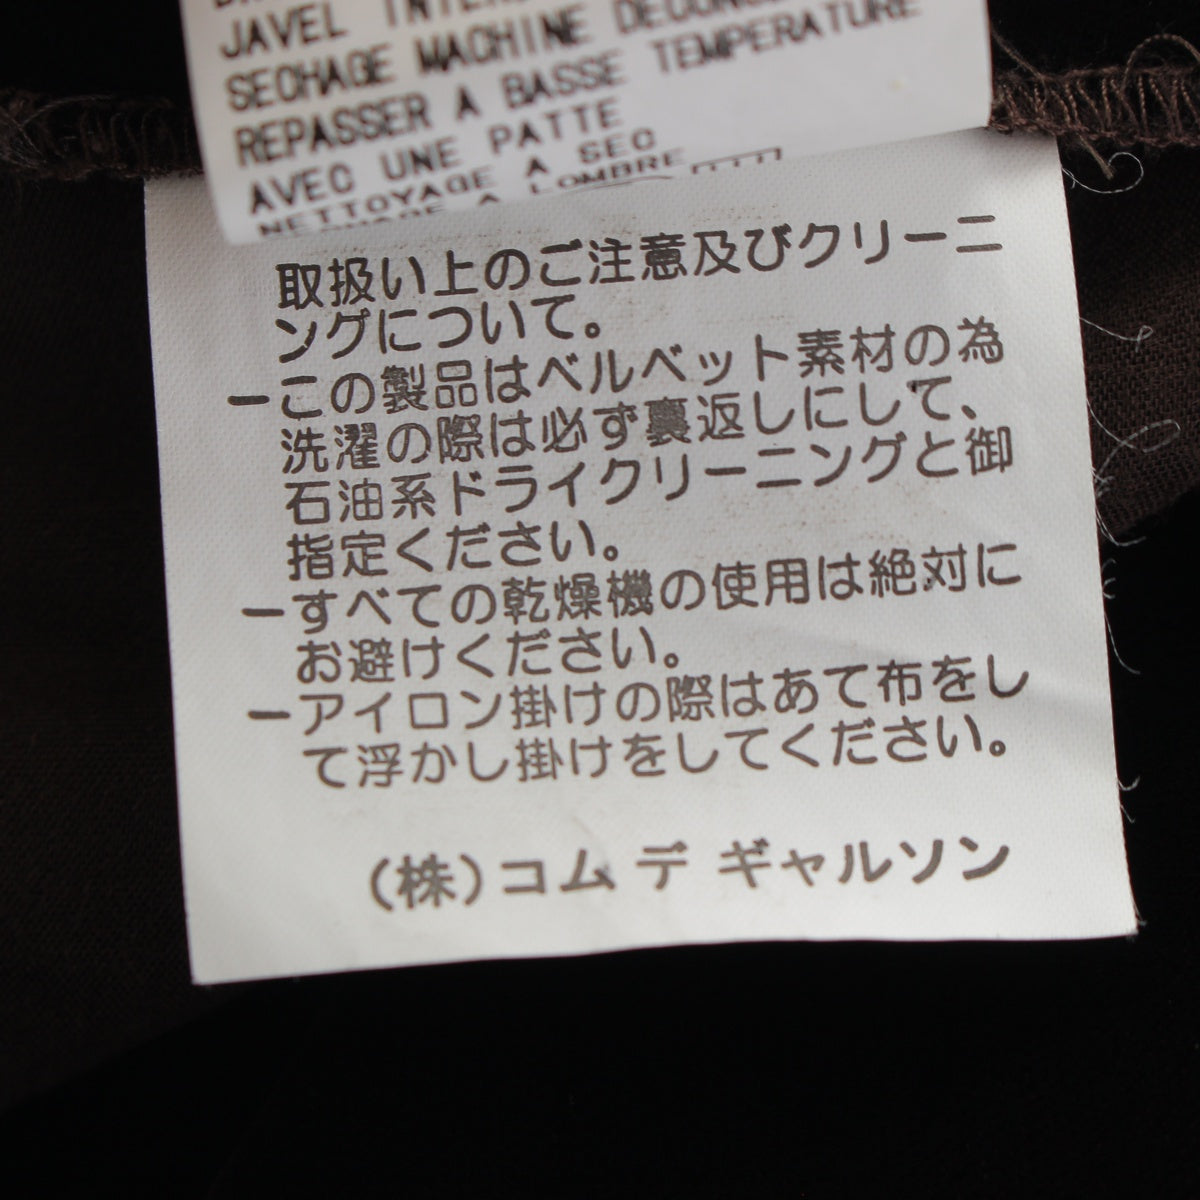 JAVEL
SECHAGE MACHINE
REPASSER A BASSE TEMPERATURE
AVEC UNE PATTE
NETTOYAGE A SEC
A LOMBRE
取扱い上のご注意及びクリーニ
ングについて。
ーこの製品はベルベット素材の為
洗濯の際は必ず裏返しにして、
石油系ドライクリーニングと御
指定ください。
ーすべての乾燥機の使用は絶対に
お避けください。
ーアイロン掛けの際はあて布をし
て浮かし掛けをしてください。
(株)コム デ ギャルソン